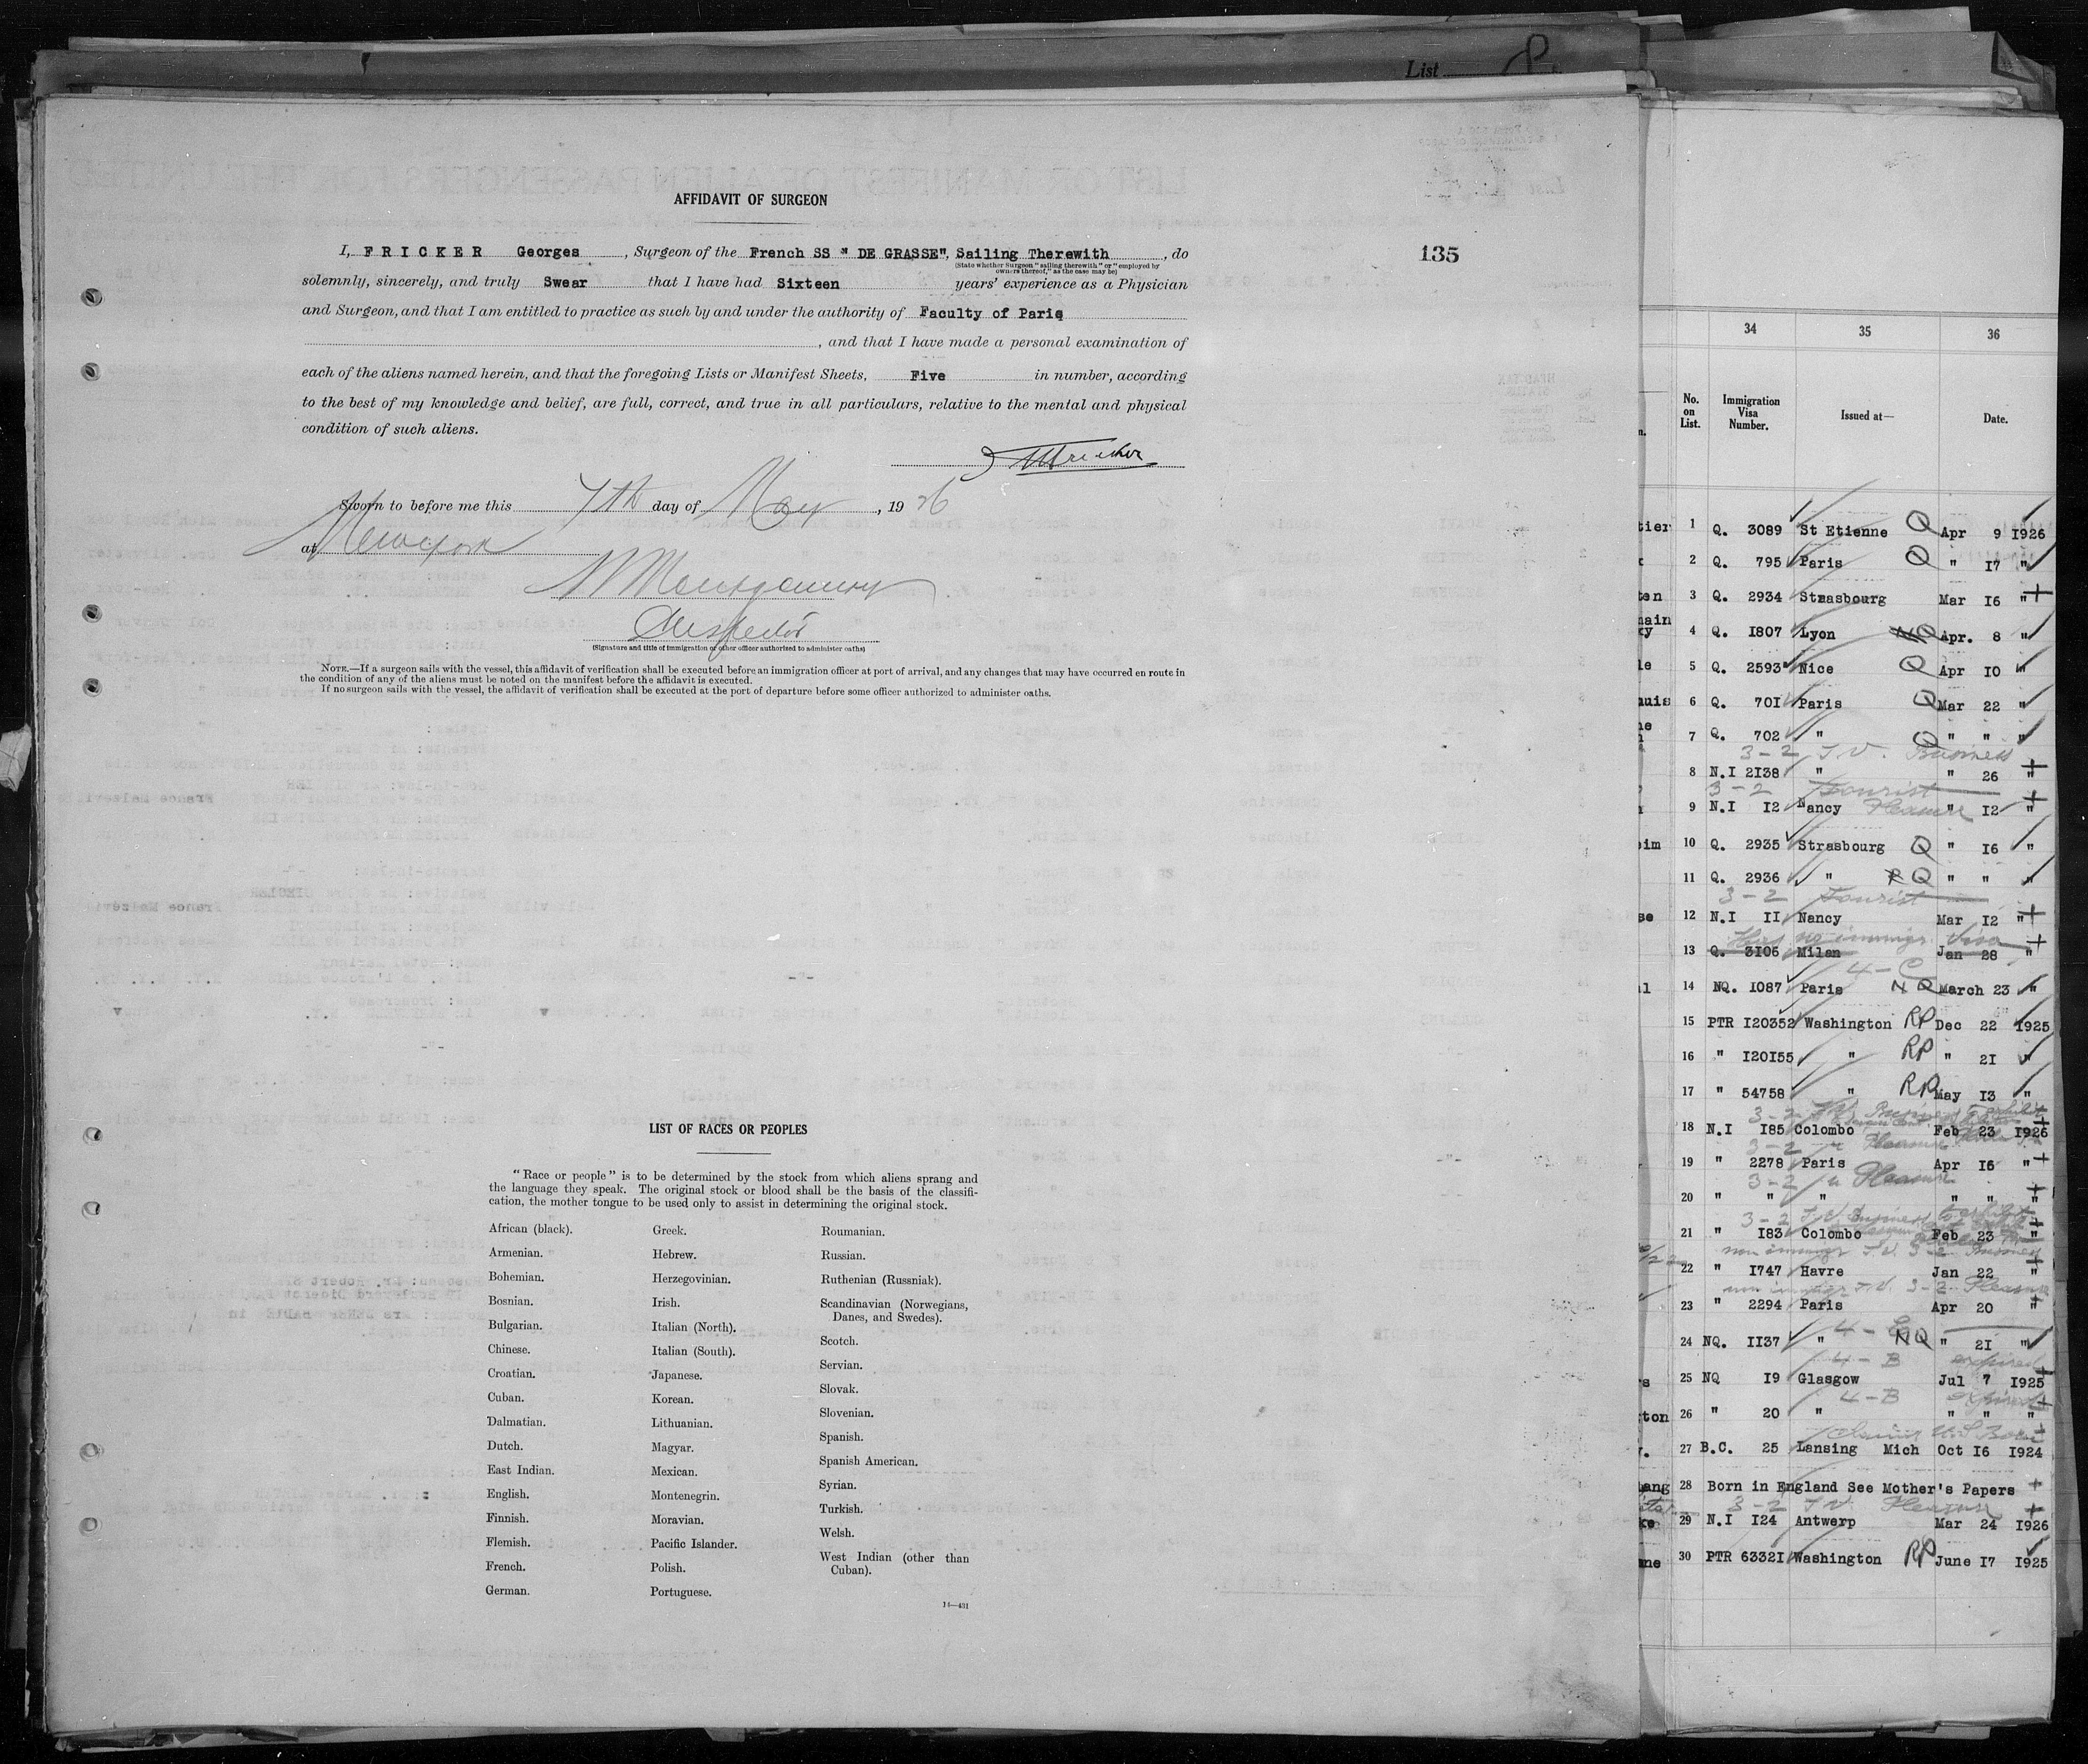 List
AFFIDAVIT OF SURGEON
I, FRICKER Georges, Surgeon of the French SS " DE GRASSE", Sailing Therewith, do
(State whether Surgeon "sailing therewith" or "employed by
owners thereof," as the case may be)
135
solemnly, sincerely, and truly Swear that I have had Sixteen years' experience as a Physician
and Surgeon, and that I am entitled to practice as such by and under the authority of Faculty of Paris
, and that I have made a personal examination of
each of the aliens named herein, and that the foregoing Lists or Manifest Sheets, Five in number, according
to the best of my knowledge and belief, are full, correct, and true in all particulars, relative to the mental and physical
condition of such aliens.
Sworn to before me this 7th day of May, 1926
at New York
Montgomery
Inspector
(Signature and title of immigration or other officer authorized to administer oaths)
NOTE.—If a surgeon sails with the vessel, this affidavit of verification shall be executed before an immigration officer at port of arrival, and any changes that may have occurred en route in
the condition of any of the aliens must be noted on the manifest before the affidavit is executed.
If no surgeon sails with the vessel, the affidavit of verification shall be executed at the port of departure before some officer authorized to administer oaths.
LIST OF RACES OR PEOPLES
"Race or people" is to be determined by the stock from which aliens sprang and
the language they speak. The original stock or blood shall be the basis of the classifi-
cation, the mother tongue to be used only to assist in determining the original stock.
African (black).
Armenian.
Bohemian.
Bosnian.
Bulgarian.
Chinese.
Croatian.
Cuban.
Dalmatian.
Dutch.
East Indian.
English.
Finnish.
Flemish.
French.
German.
Greek.
Hebrew.
Herzegovinian.
Irish.
Italian (North).
Italian (South).
Japanese.
Korean.
Lithuanian.
Magyar.
Mexican.
Montenegrin.
Moravian.
Pacific Islander.
Polish.
Portuguese.
Roumanian.
Russian.
Ruthenian (Russniak).
Scandinavian (Norwegians,
Danes, and Swedes).
Scotch.
Servian.
Slovak.
Slovenian.
Spanish.
Spanish American.
Syrian.
Turkish.
Welsh.
West Indian (other than
Cuban).
14—431
34 35 36
No. on List. Immigration Visa Number. Issued at— Date.
1 Q. 3089 St Etienne Q Apr 9 1926
2 Q. 795 Paris Q " 17 "
3 Q. 2934 Strasbourg Mar 16 "
4 Q. 1807 Lyon NQ Apr. 8 "
5 Q. 2593 Nice Q Apr 10 "
6 Q. 701 Paris Q Mar 22 "
7 Q. 702 " Q " " "
3-2 T.V. Business
8 N.I 2138 " " 26 "
3-2 Tourist
9 N.I 12 Nancy Pleasure " 12 "
10 Q. 2935 Strasbourg Q " 16 "
11 Q. 2936 " Q " " "
3-2 Tourist
12 N.I 11 Nancy Mar 12 "
Has no immigr. visa
13 Q. 3106 Milan Jan 28 "
4-C
14 NQ. 1087 Paris NQ March 23 "
15 PTR 120352 Washington RP Dec 22 1925
16 " 120155 " RP " 21 "
17 " 54758 " RP May 13 "
3-2 T.V. Business to exhibit
18 N.I 185 Colombo Feb 23 1926
3-2 " Pleasure
19 " 2278 Paris Apr 16 "
3-2 " Pleasure
20 " " " " " "
3-2 T.V. Business to exhibit
21 " 183 Colombo Feb 23 "
non immigr T.V. 3-2 Business
22 " 1747 Havre Jan 22 "
non immigr T.V. 3-2 Pleasure
23 " 2294 Paris Apr 20 "
4-C
24 NQ. 1137 " NQ " 21 "
4-B expired
25 NQ 19 Glasgow Jul 7 1925
4-B Expired
26 " 20 " " " "
Claims U.S. Born
27 B.C. 25 Lansing Mich Oct 16 1924
28 Born in England See Mother's Papers
3-2 T.V. Pleasure
29 N.I 124 Antwerp Mar 24 1926
30 PTR 63321 Washington RP June 17 1925